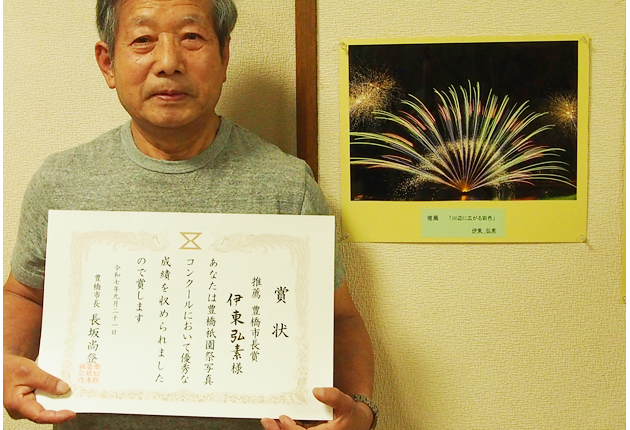 賞状
推薦 豊橋市長賞
伊東弘素様
あなたは豊橋祇園祭写真
コンクールにおいて優秀な
成績を収められました
ので賞します
令和七年九月二十一日
豊橋市長 長坂尚登
推薦 「川辺に広がる彩色」
伊東 弘素